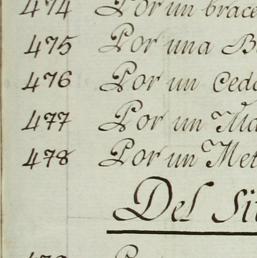 474 Por un brace
475 Por una B
476 Por un Ced
477 Por un
478 Por un Met
Del Sit
479